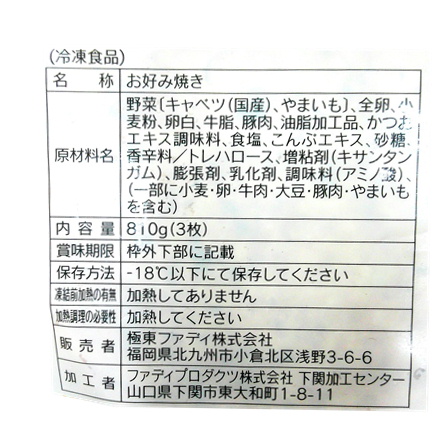 (冷凍食品)
名 称 お好み焼き
原材料名 野菜〔キャベツ(国産)、やまいも〕、全卵、小
麦粉、卵白、牛脂、豚肉、油脂加工品、かつお
エキス調味料、食塩、こんぶエキス、砂糖、
香辛料/トレハロース、増粘剤(キサンタン
ガム)、膨張剤、乳化剤、調味料(アミノ酸)、
(一部に小麦・卵・牛肉・大豆・豚肉・やまいも
を含む)
内 容 量 810g(3枚)
賞味期限 枠外下部に記載
保存方法 -18℃以下にて保存してください
凍結前加熱の有無 加熱してありません
加熱調理の必要性 加熱してください
販 売 者 極東ファディ株式会社
福岡県北九州市小倉北区浅野3-6-6
加 工 者 ファディプロダクツ株式会社 下関加工センター
山口県下関市東大和町1-8-11